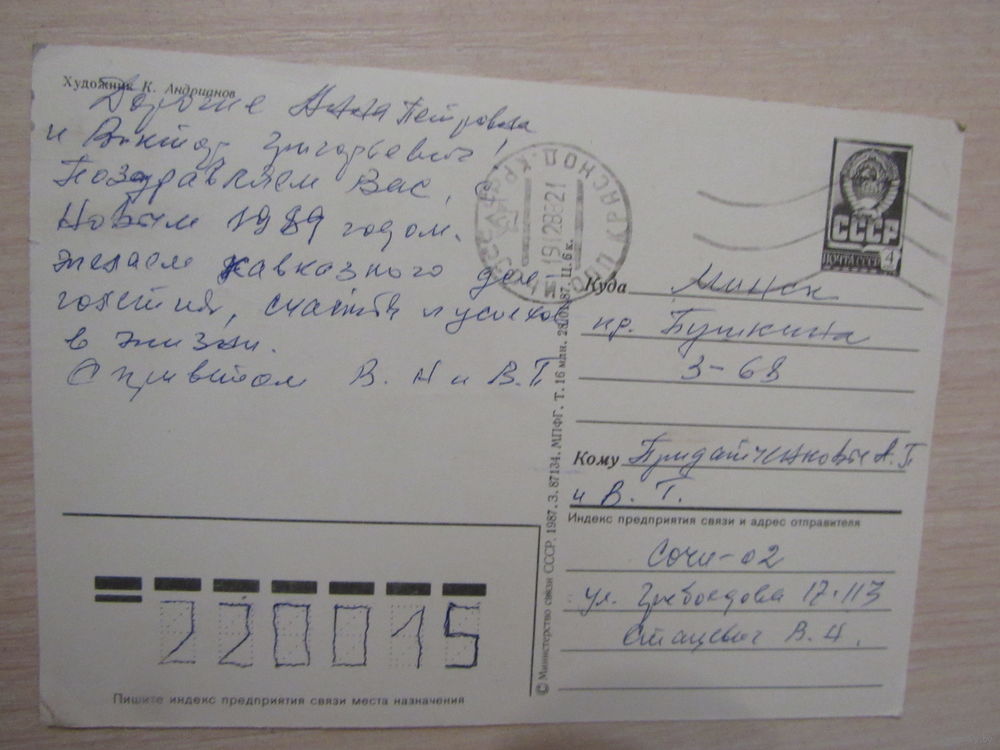 Художник К. Андрианов
Дорогие Анна Петровна
и Виктор Григорьевич!
Поздравляем Вас, с
Новым 1989 годом.
желаем кавказного дол
голетия, счастья и успехов
в жизни.
С приветом В. Н и В.Г
СССР
ПОЧТА СССР 4
Куда Минск
пр. Пушкина
3-68
Кому Придатченковым А. П
и В. Г.
Индекс предприятия связи и адрес отправителя
Сочи-02
ул. Грибоедова 17-113
Стацевич В. Н.
220015
Пишите индекс предприятия связи места назначения
© Министерство связи СССР. 1987. З. 87134. МПФГ. Т. 16 млн. Ц. 6 к.